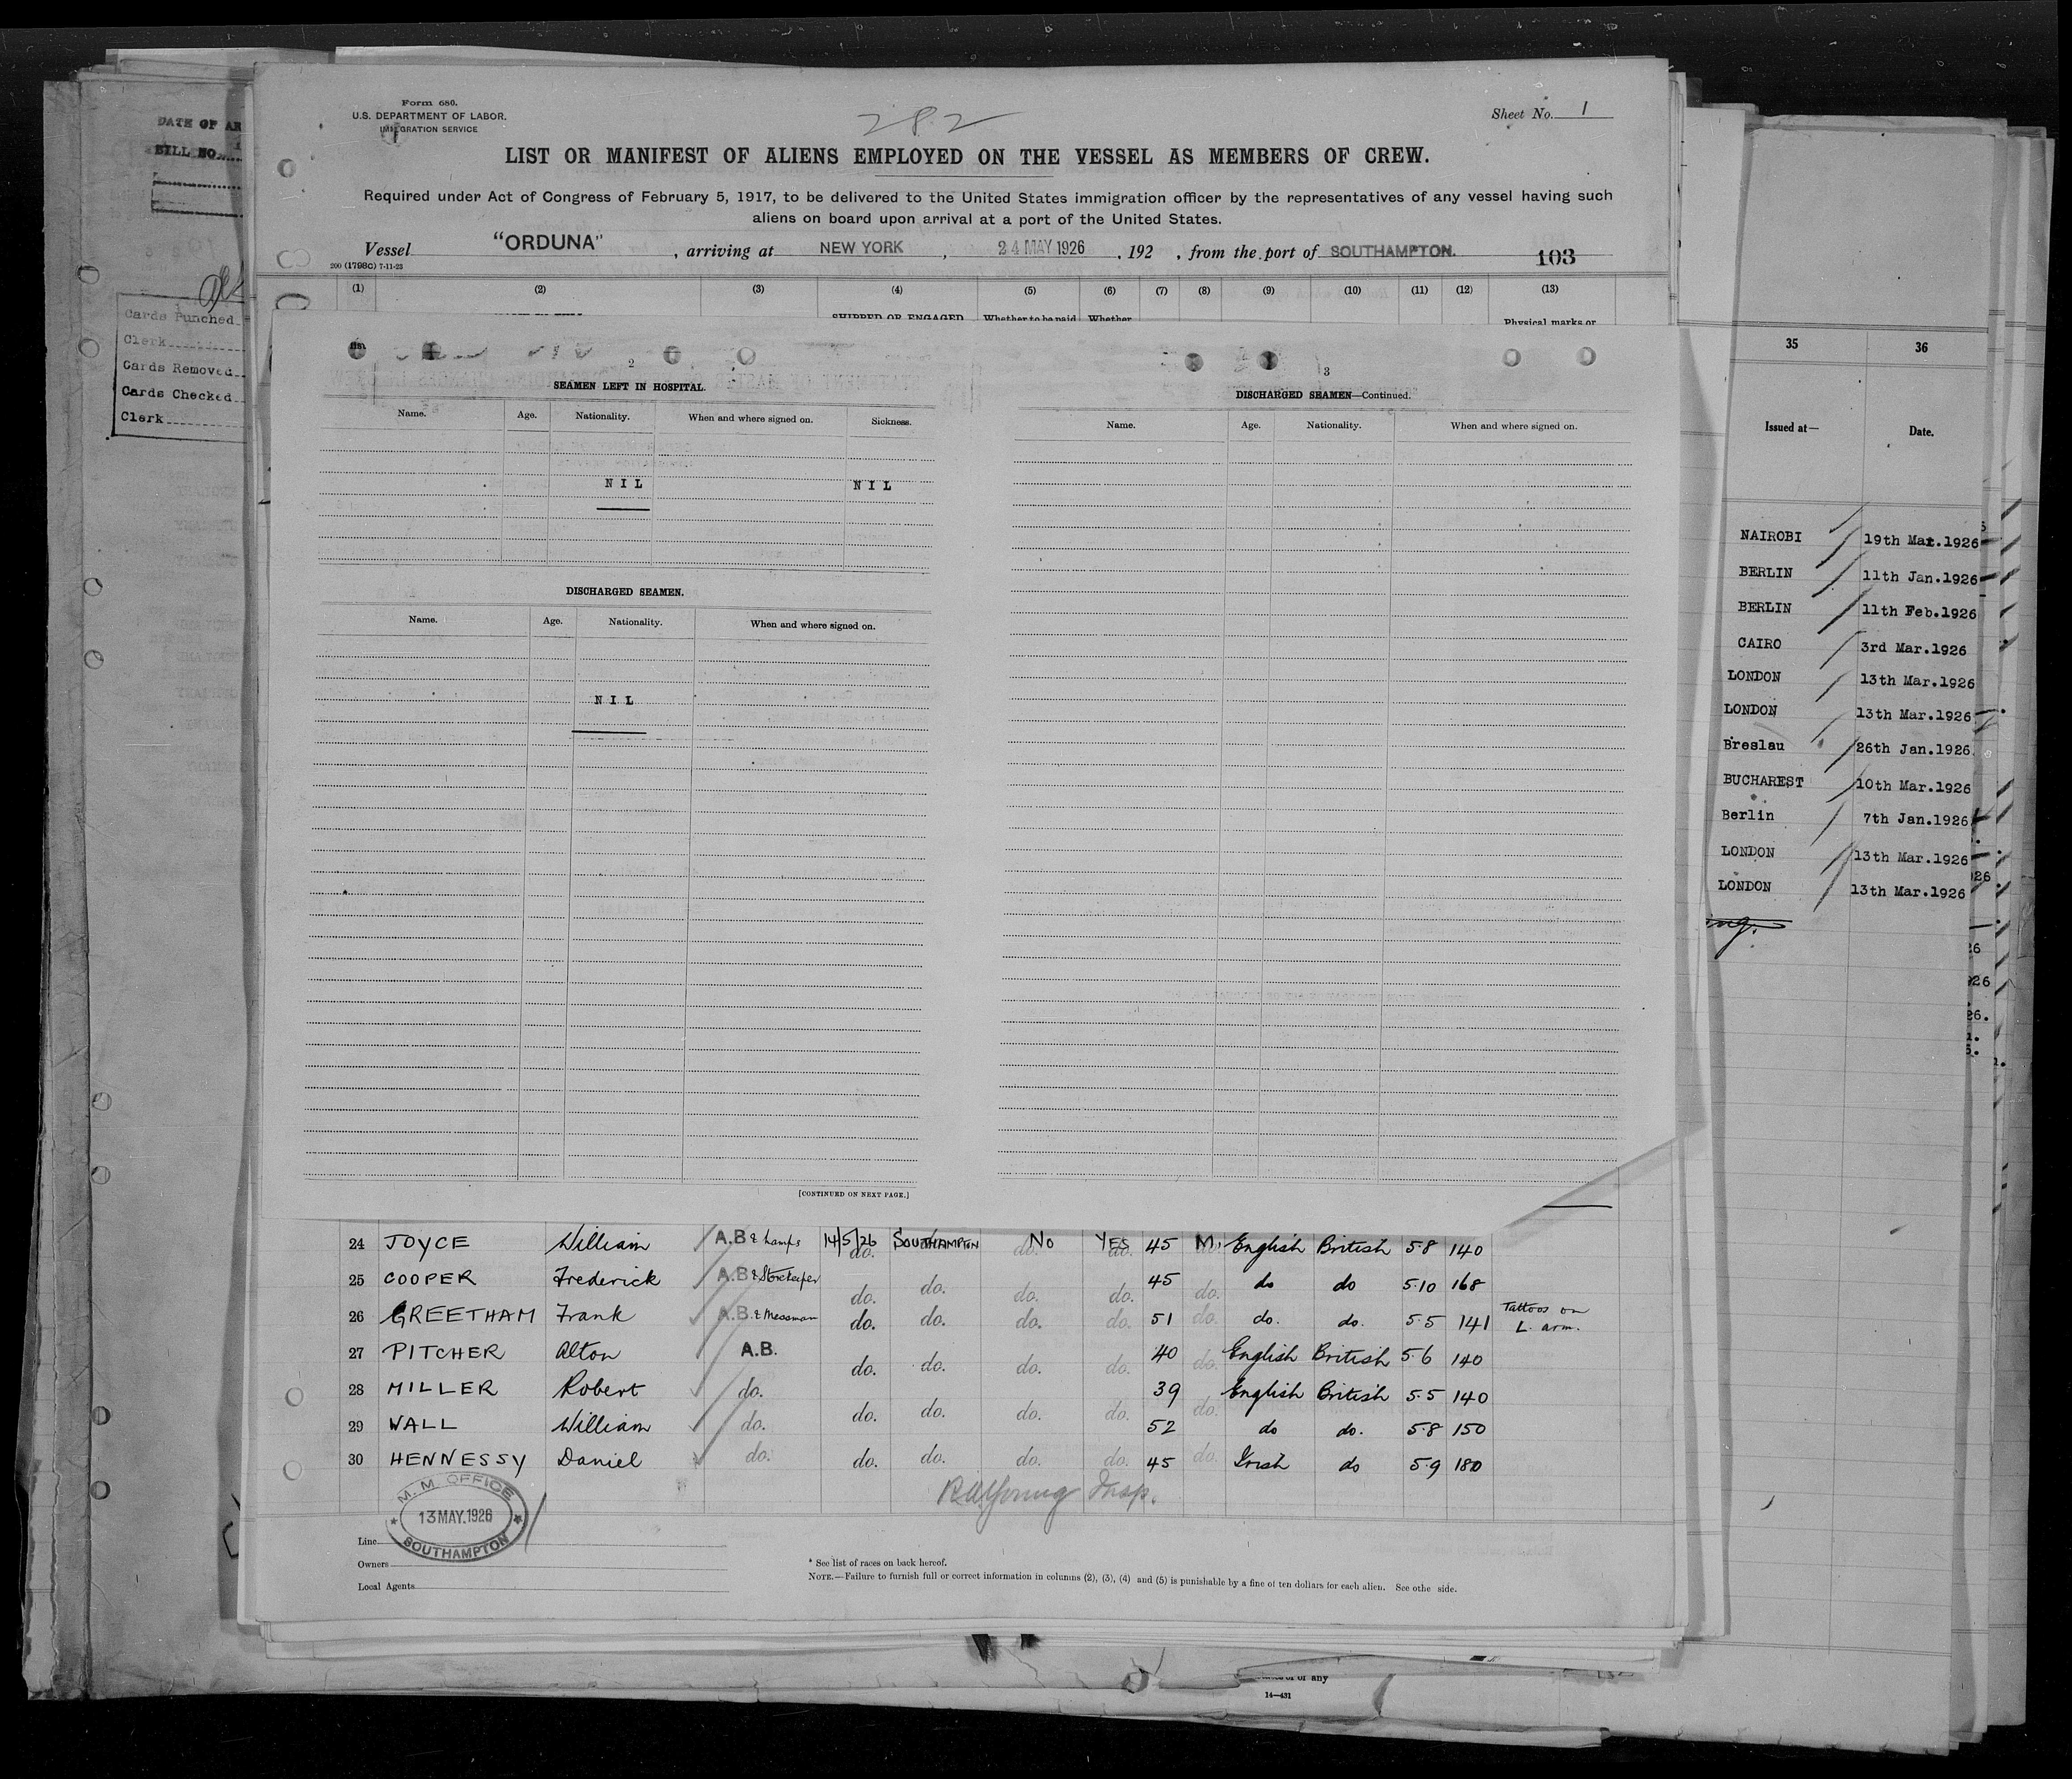 Form 680.
U.S. DEPARTMENT OF LABOR.
IMMIGRATION SERVICE
282
Sheet No. 1
LIST OR MANIFEST OF ALIENS EMPLOYED ON THE VESSEL AS MEMBERS OF CREW.
Required under Act of Congress of February 5, 1917, to be delivered to the United States immigration officer by the representatives of any vessel having such
aliens on board upon arrival at a port of the United States.
Vessel "ORDUNA", arriving at NEW YORK, 24 MAY 1926, 192 , from the port of SOUTHAMPTON. 103
200 (1798c) 7-11-23
(1) (2) (3) (4) (5) (6) (7) (8) (9) (10) (11) (12) (13)
SHIPPED OR ENGAGED Whether to be paid Whether Physical marks or
DATE OF
BILL NO.
Cards Punched
Clerk
Cards Removed
Cards Checked
Clerk
2
SEAMEN LEFT IN HOSPITAL.
Name. Age. Nationality. When and where signed on. Sickness.
NIL NIL
DISCHARGED SEAMEN.
Name. Age. Nationality. When and where signed on.
NIL
[CONTINUED ON NEXT PAGE.]
3
DISCHARGED SEAMEN—Continued.
Name. Age. Nationality. When and where signed on.
35 36
Issued at— Date.
NAIROBI 19th Mar.1926
BERLIN 11th Jan.1926
BERLIN 11th Feb.1926
CAIRO 3rd Mar.1926
LONDON 13th Mar.1926
LONDON 13th Mar.1926
Breslau 26th Jan.1926
BUCHAREST 10th Mar.1926
Berlin 7th Jan.1926
LONDON 13th Mar.1926
LONDON 13th Mar.1926
24 JOYCE William A.B & Lamps 14/5/26 SOUTHAMPTON No YES 45 M. English British 5·8 140
25 COOPER Frederick A.B & Storekeeper do. do. do. do. 45 do. do do 5·10 168
26 GREETHAM Frank A.B. & Messman do. do. do. do. 51 do. do. do. 5·5 141 Tattoos on L. arm.
27 PITCHER Alton A.B. do. do. do. do. 40 do. English British 5·6 140
28 MILLER Robert do. do. do. do. do. 39 do. English British 5·5 140
29 WALL William do. 52 do do. 5·8 150
30 HENNESSY Daniel do. do. do. do. do. 45 do. Irish do 5·9 180
Insp.
M. M. OFFICE
13 MAY. 1926
SOUTHAMPTON
Line
Owners
Local Agents
* See list of races on back hereof.
NOTE.—Failure to furnish full or correct information in columns (2), (3), (4) and (5) is punishable by a fine of ten dollars for each alien. See othe side.
of any
14—431